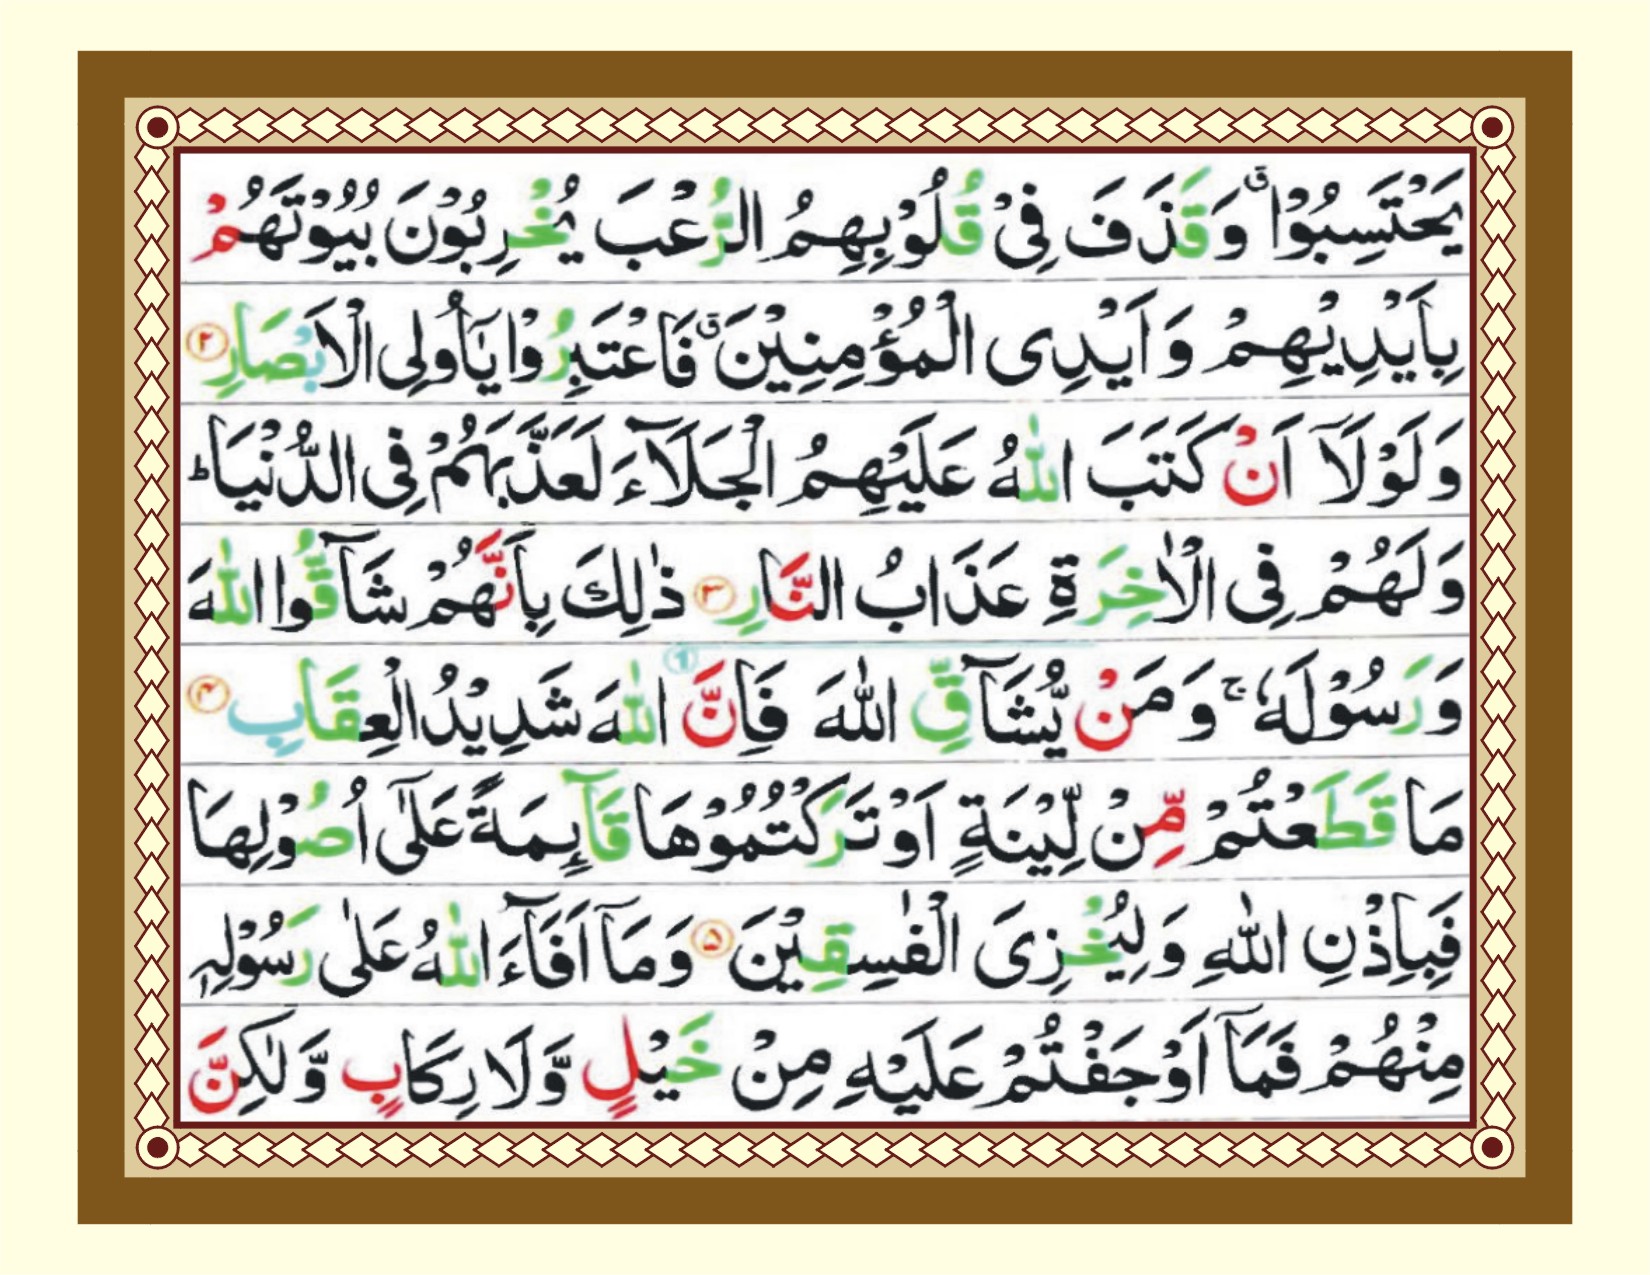 يَحْتَسِبُوْا ۗ وَقَذَفَ فِىْ قُلُوْبِهِمُ الرُّعْبَ يُخْرِبُوْنَ بُيُوْتَهُمْ
بِاَيْدِيْهِمْ وَاَيْدِى الْمُؤْمِنِيْنَ ۗ فَاعْتَبِرُوْا يٰۤاُولِى الْاَبْصَارِ ۲
وَلَوْلَاۤ اَنْ كَتَبَ اللّٰهُ عَلَيْهِمُ الْجَلَآءَ لَعَذَّبَهُمْ فِى الدُّنْيَا ؕ
وَلَهُمْ فِى الْاٰخِرَةِ عَذَابُ النَّارِ ۳ ذٰلِكَ بِاَنَّهُمْ شَآقُّوا اللّٰهَ
وَرَسُوْلَهٗ ۚ وَمَنْ يُّشَآقِّ اللّٰهَ فَاِنَّ ۱ اللّٰهَ شَدِيْدُ الْعِقَابِ ۴
مَا قَطَعْتُمْ مِّنْ لِّيْنَةٍ اَوْ تَرَكْتُمُوْهَا قَآىِٕمَةً عَلٰٓى اُصُوْلِهَا
فَبِاِذْنِ اللّٰهِ وَلِيُخْزِىَ الْفٰسِقِيْنَ ۵ وَمَاۤ اَفَآءَ اللّٰهُ عَلٰى رَسُوْلِهٖ
مِنْهُمْ فَمَاۤ اَوْجَفْتُمْ عَلَيْهِ مِنْ خَيْلٍ وَّلَا رِكَابٍ وَّلٰكِنَّ